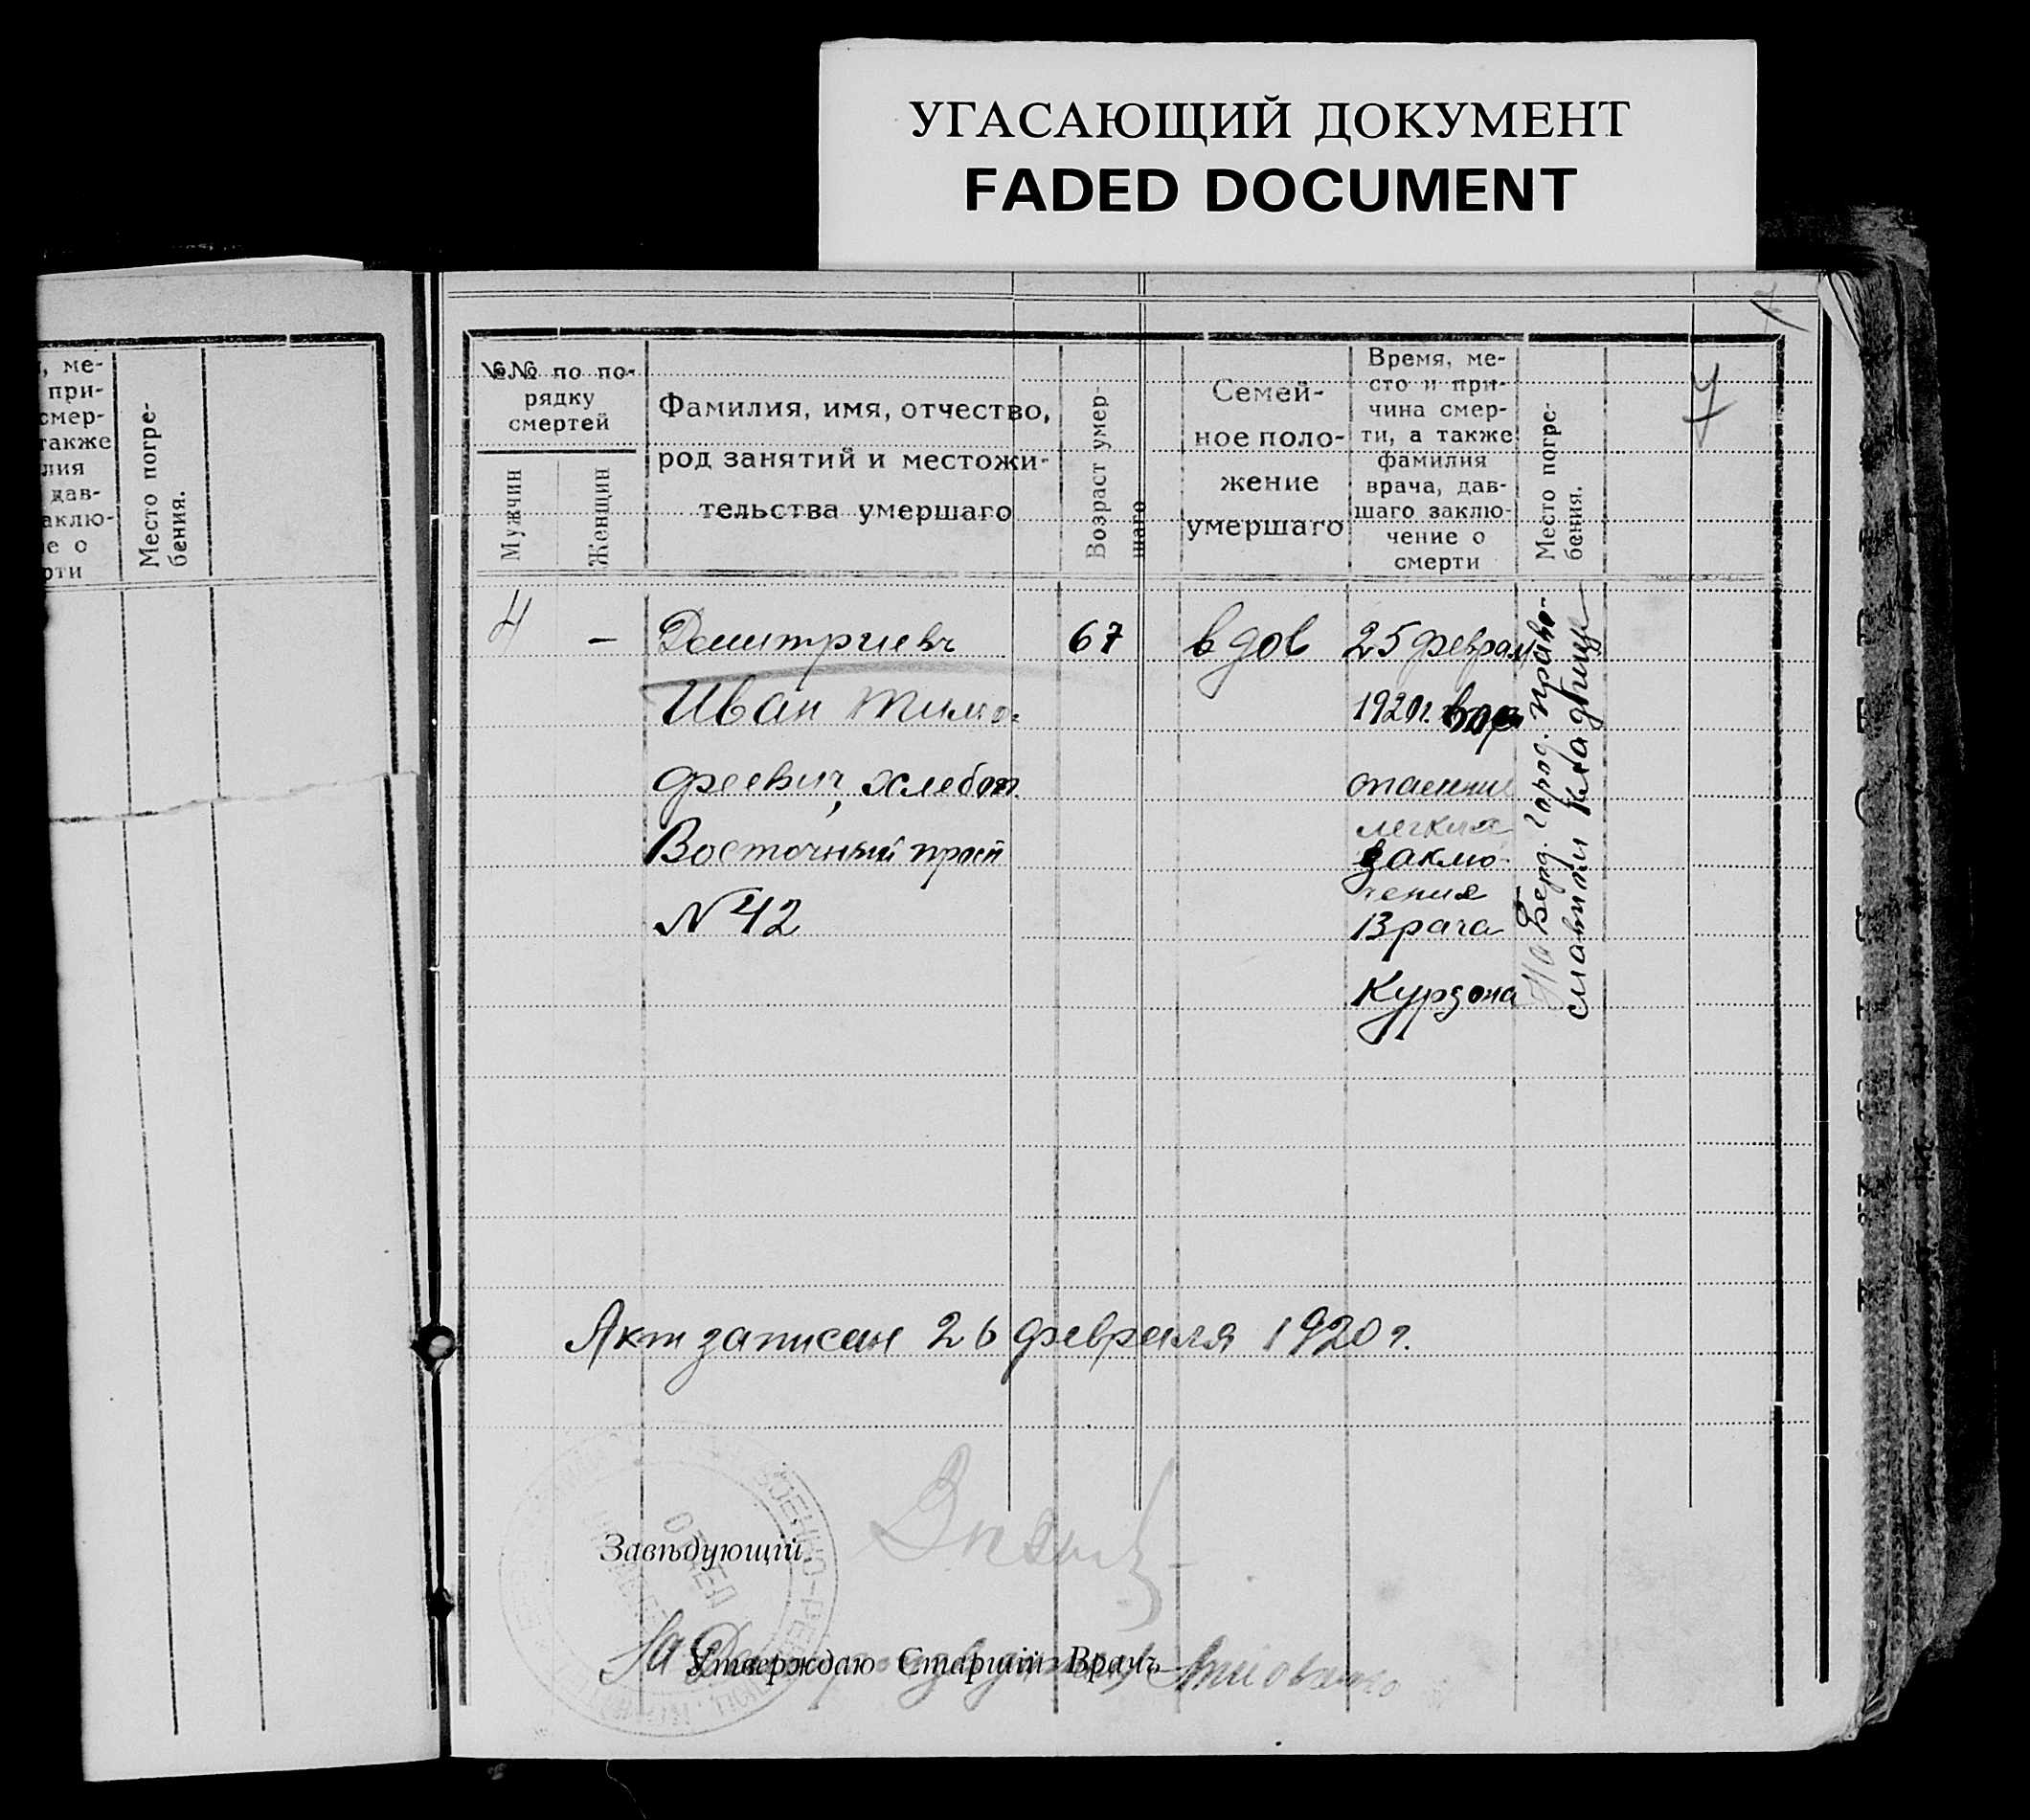 УГАСАЮЩИЙ ДОКУМЕНТ
FADED DOCUMENT
, ме-
при-
смер-
также
лия
дав-
аклю-
е о
рти
Место погре-
бения.
7
№№ по по-
рядку
смертей
Мужчин
Женщин
Фамилия, имя, отчество,
род занятий и местожи-
тельства умершаго
Возраст умер-
шаго
Семей-
ное поло-
жение
умершаго
Время, ме-
сто и при-
чина смер-
ти, а также
фамилия
врача, дав-
шаго заклю-
чение о
смерти
Место погре-
бения.
4
–
Дмитриевъ
Иван Тимо-
феевич, хлебоп.
Восточный просп
N 42
67
вдов
25 феврал
1920 г. вос
паление
легких
Заклю-
чения
Врача
Курдона
На Берд. Город. Право-
славном Кладбище
Акт записан 26 февраля 1920 г.
ОТДЕЛ
Завѣдующій
За
Утверждаю Старшій Врачъ